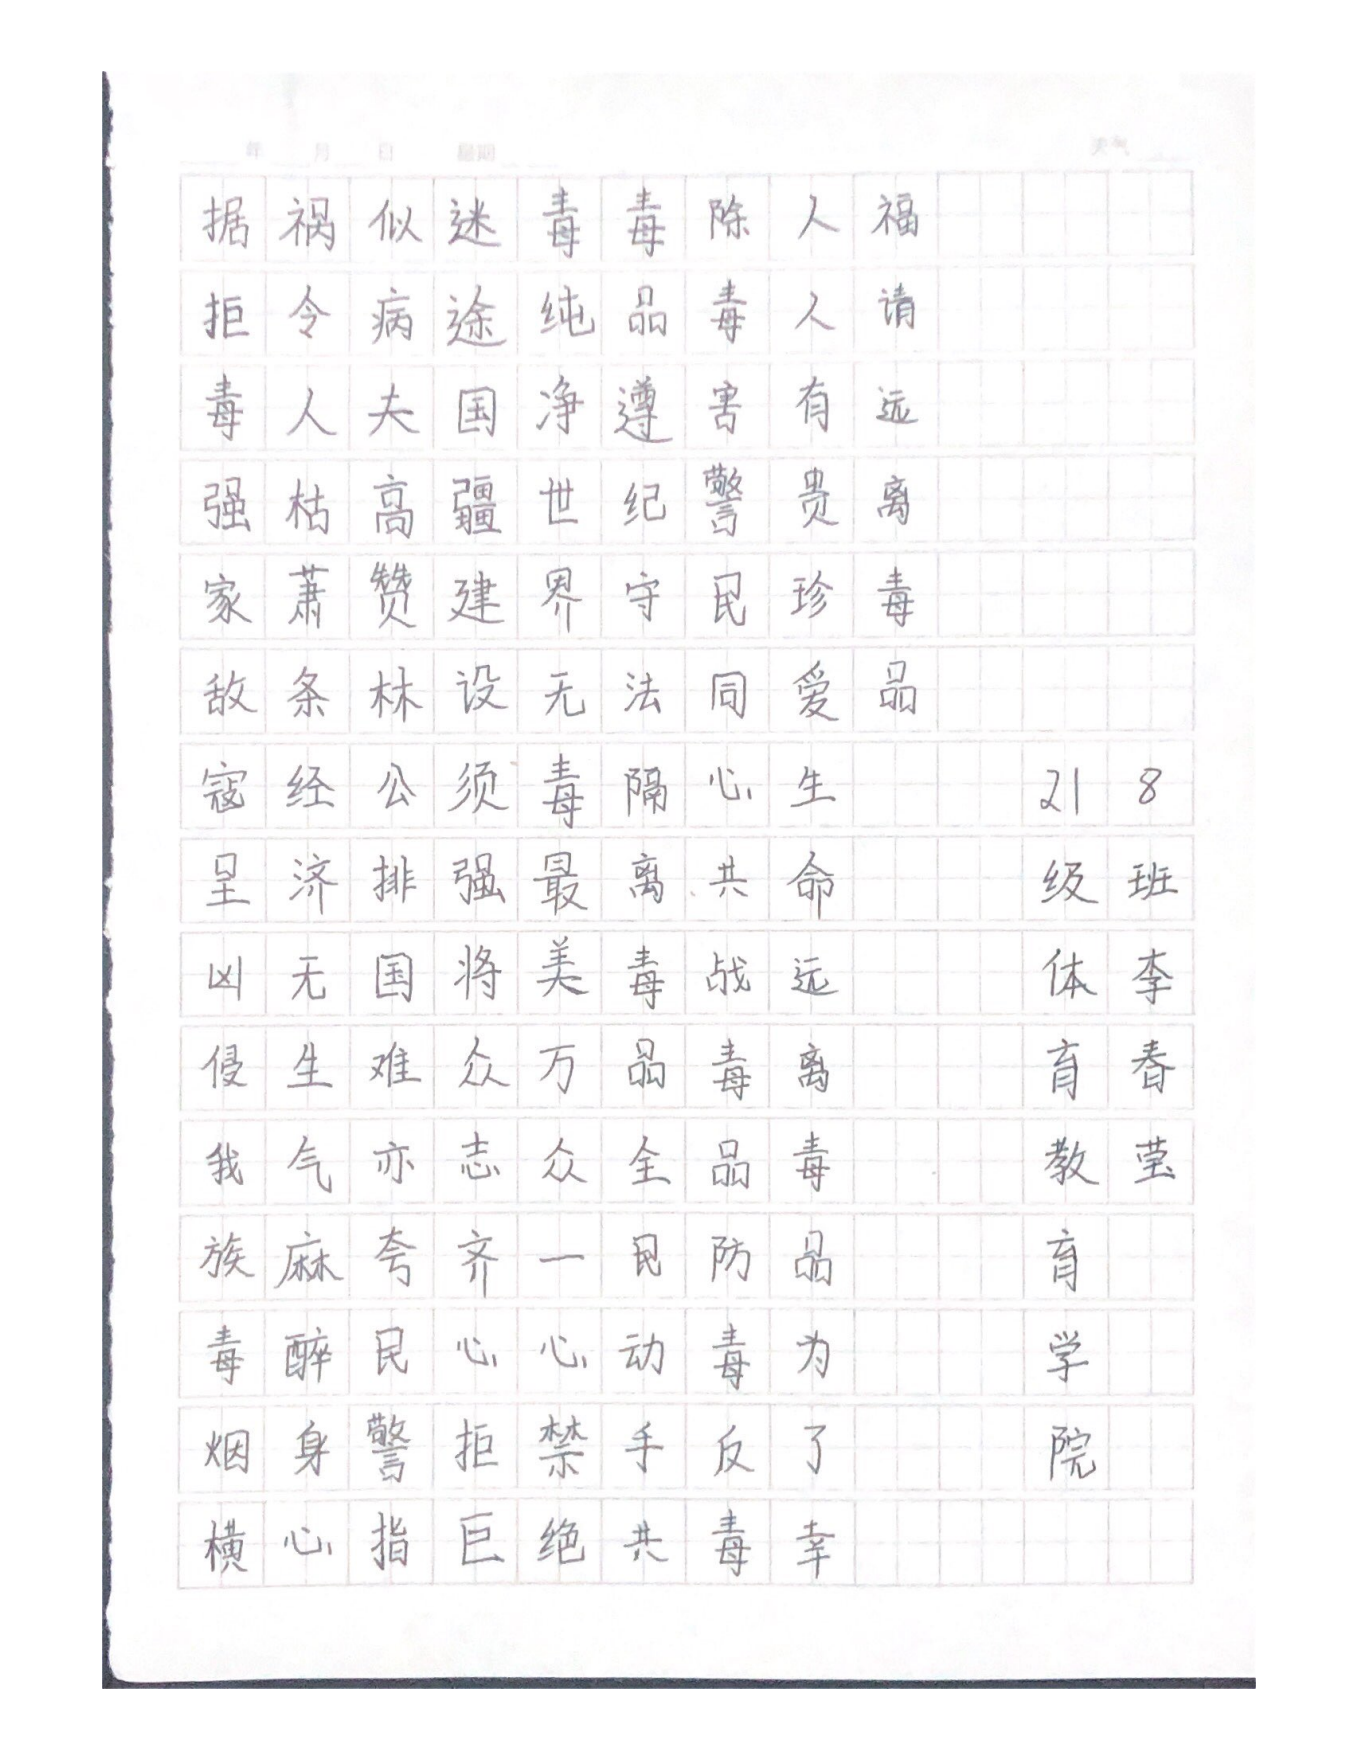 年 月 日 星期 天气
据拒毒强家敌寇呈凶侵我族毒烟横
祸令人枯萧条经济无生气麻醉身心
似病夫高赞林公排国难亦夸民警指
迷途国疆建设须强将众志齐心拒巨
毒纯净世界无毒最美万众一心禁绝
毒品遵纪守法隔离毒品全民动手共
除毒害警民同心共战毒品防毒反毒
人人有贵珍爱生命远离毒品为了幸
福请远离毒品
21级体育教育学院
8班李春莹